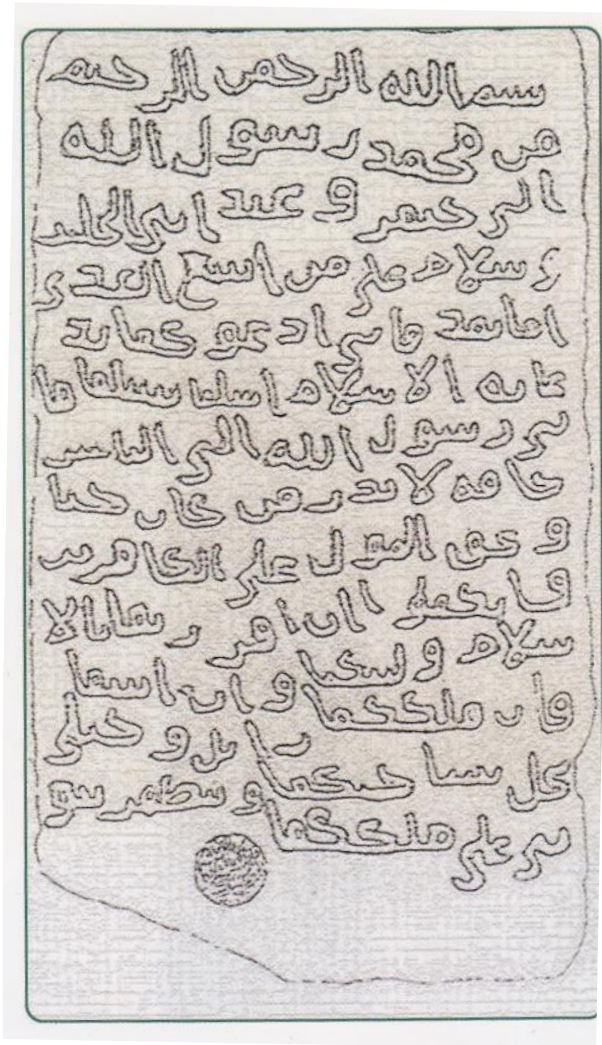 بسم الله الرحمن الرحيم
من محمد رسول الله
الى جيفر وعبد ابنى الجلند
ى سلام على من اتبع الهدى
اما بعد فانى ادعوكما بد
عايه الاسلام اسلما تسلما فا
نى رسول الله الى الناس
كافه لانذر من كان حيا
ويحق القول على الكافرين
فانكما ان اقررتما بالا
سلام وليتكما وان ابيتما
فان ملككما زايل وخيلى
تحل بساحتكما وتظهر نبو
تى على ملككما